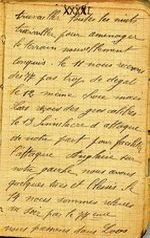 XXXXI
travailler toutes les nuits
travailler pour aménager
le terrain nouvellement
conquis. le 11 nous recevons
des 77 pas trop de dégat
le 12 même
des gros calibres
le 13 Simulacre d'attaque
de notre part pour faciliter
l'attaque Anglaise sur
notre gauche nous avons
quelques tués et blessés. le
14 nous sommes relevés
par le 77 eme
nous passons dans Loos